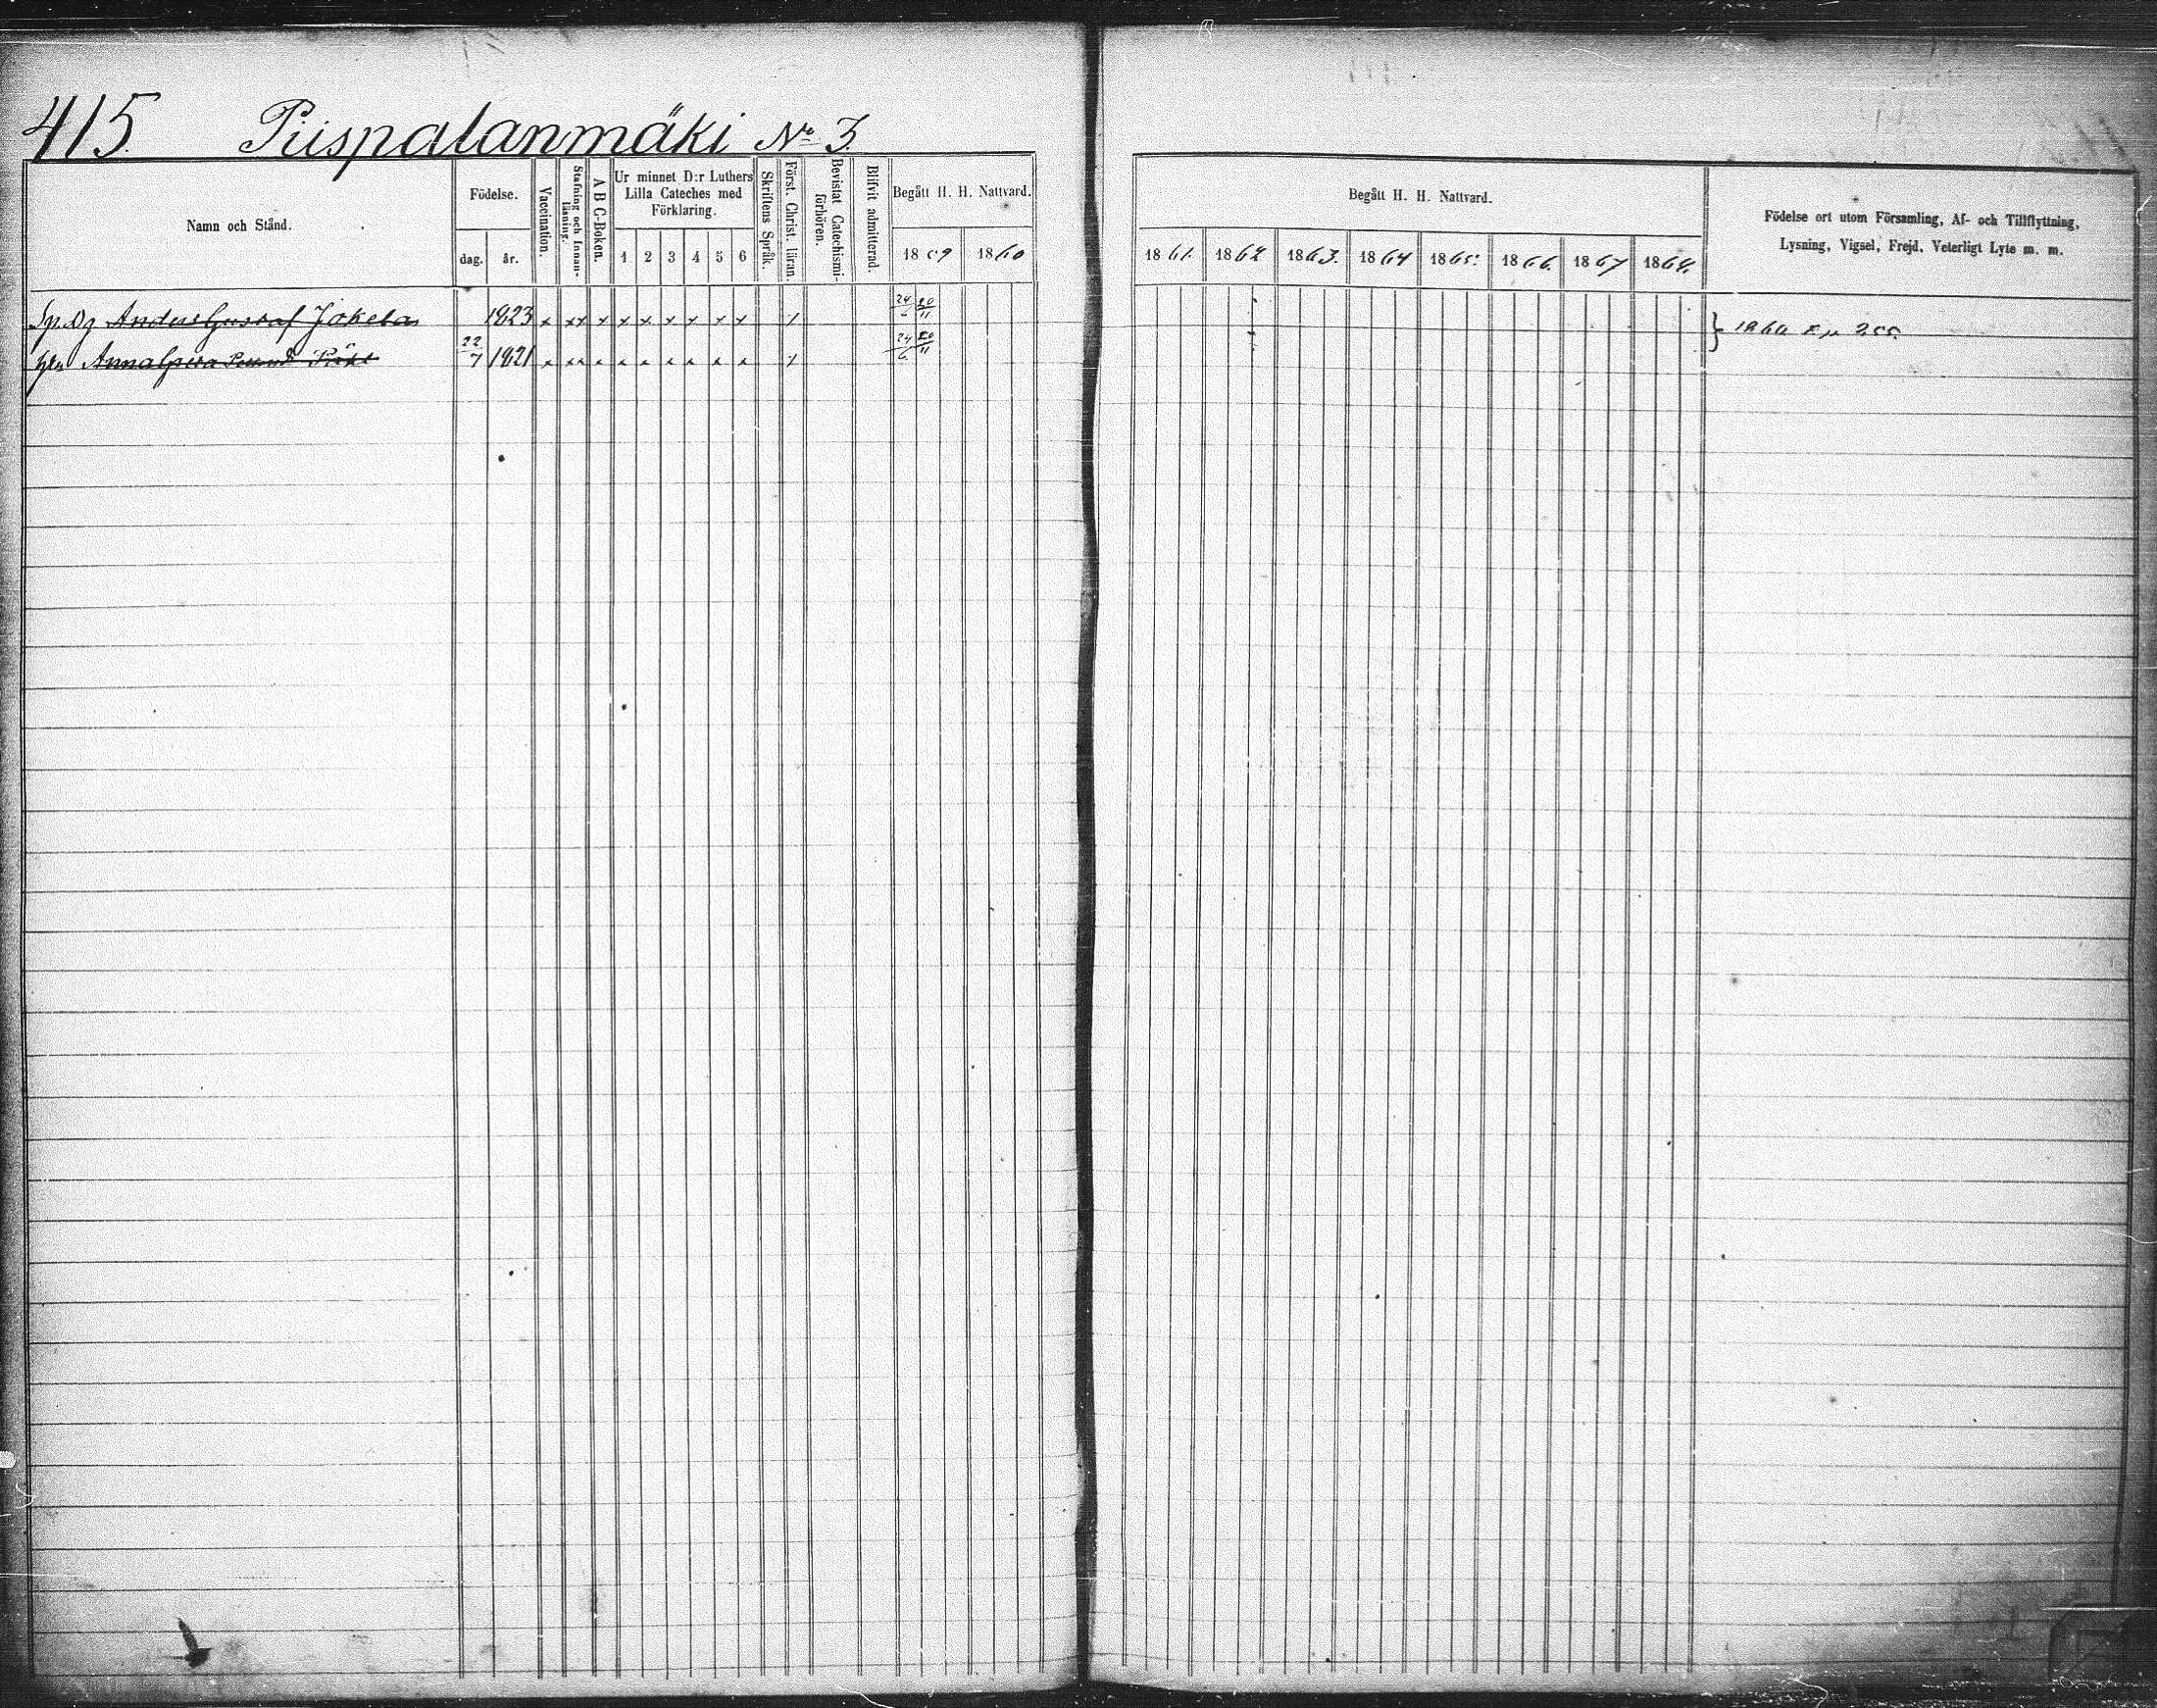 415. Piispalanmäki No 3.
Namn och Stånd.
Födelse.
dag. år.
Vaccination.
Stafning och Innan-
läsning.
A B C-Boken.
Ur minnet D:r Luthers
Lilla Cateches med
Förklaring.
1 2 3 4 5 6
Skriftens Språk.
Först. Christ. läran.
Bevistat Catechismi-
förhören.
Blifvit admitterad.
Begått H. H. Nattvard.
1859 1860
Begått H. H. Nattvard.
1861. 1862 1863. 1864 1865. 1866. 1867 1868.
Födelse ort utom Församling, Af- och Tillflyttning,
Lysning, Vigsel, Frejd, Veterligt Lyte m. m.
Anders Gustaf Jokela 1823 x xx x x x x x x x 24/6 20/11
22/7 1821 x xx x x x x x x x 24/6 20/11
1860